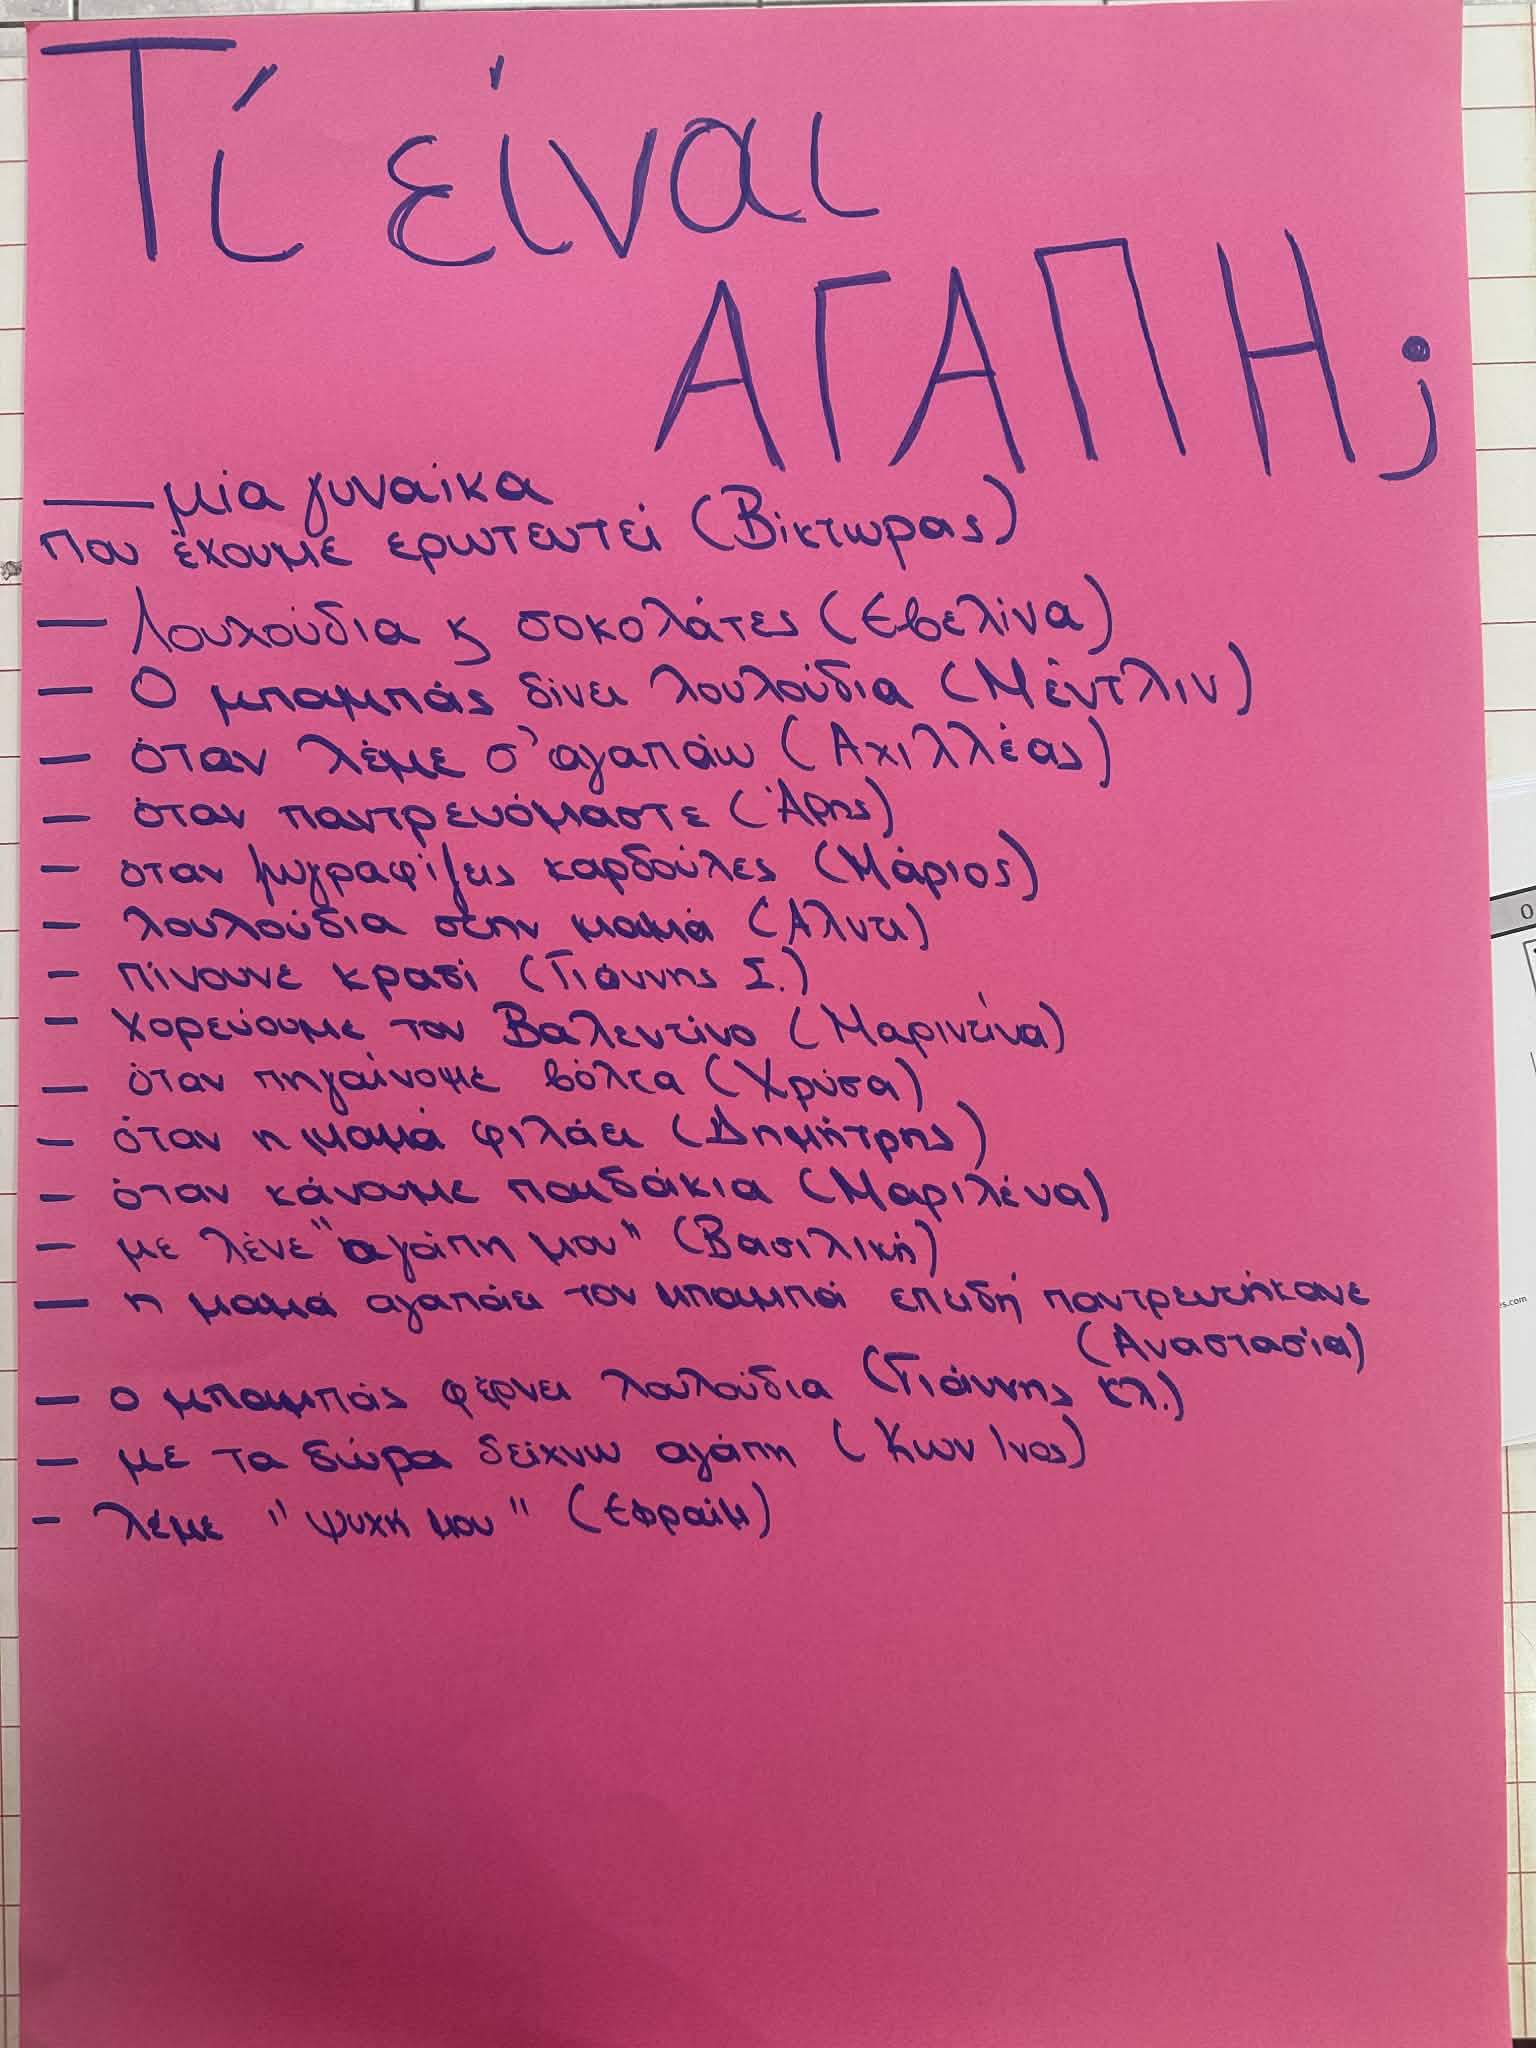 Τί είναι
ΑΓΑΠΗ;
— μία γυναίκα
που έχουμε ερωτευτεί (Βίκτωρας)
— Λουλούδια κ σοκολάτες (Εβελίνα)
— Ο μπαμπάς δίνει λουλούδια (Μέντλιν)
— όταν λέμε σ' αγαπάω (Αχιλλέας)
— όταν παντρευόμαστε (Άρης)
— όταν ζωγραφίζεις καρδούλες (Μάριος)
— λουλούδια στην μαμά (Αλντι)
— πίνουνε κρασί (Γιάννης Σ.)
— χορεύουμε τον Βαλεντίνο (Μαριντίνα)
— όταν πηγαίνουμε βόλτα (Χρύσα)
— όταν η μαμά φιλάει (Δημήτρης)
— όταν κάνουμε παιδάκια (Μαριλένα)
— με λένε "αγάπη μου" (Βασιλική)
— η μαμά αγαπάει τον μπαμπά επειδή παντρευτήκανε
(Αναστασία)
— ο μπαμπάς φέρνει λουλούδια (Γιάννης Κλ.)
— με τα δώρα δείχνω αγάπη (Κων/νος)
— λέμε "ψυχή μου" (Εφραίμ)
0
es.com